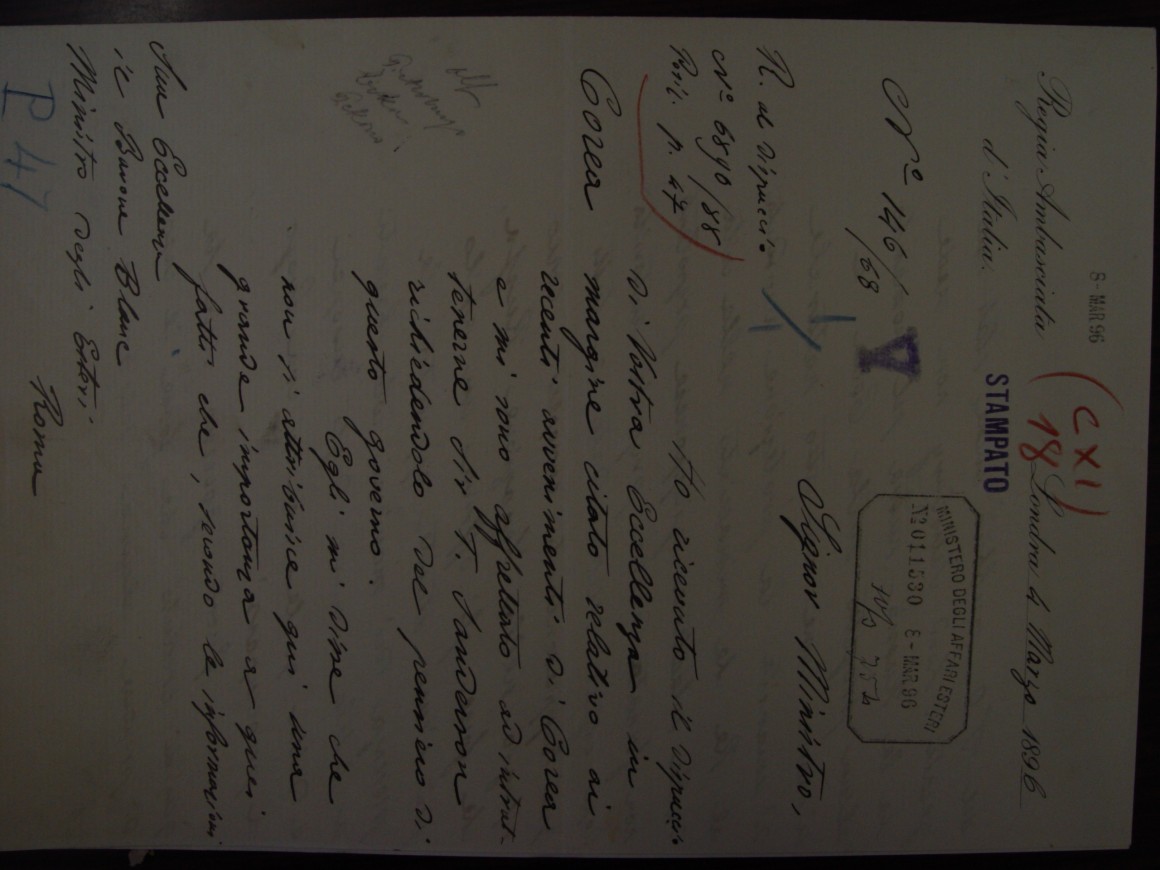 8 - MAR 96
(CXI)
18
Regia Ambasciata
d'Italia.
Londra 4 Marzo 1896
STAMPATO
MINISTERO DEGLI AFFARI ESTERI
No 011530 8 - MAR 96
No 146/68
Signor Ministro,
R. al dispaccio
No 6890/88
Poril. p. 47
Ho ricevuto il dispaccio
di Vostra Eccellenza in
Corea
margine citato relativo ai
recenti avvenimenti di Corea
e mi sono affrettato ad intrat-
tenerne Sir T. Sanderson
richiedendolo del pensiero di
questo governo.
Egli mi disse che
non si attribuisce qui una
grande importanza a quei
fatti che, secondo le informazioni
Sua Eccellenza
il Barone Blanc
Ministro degli Esteri
Roma
P 47